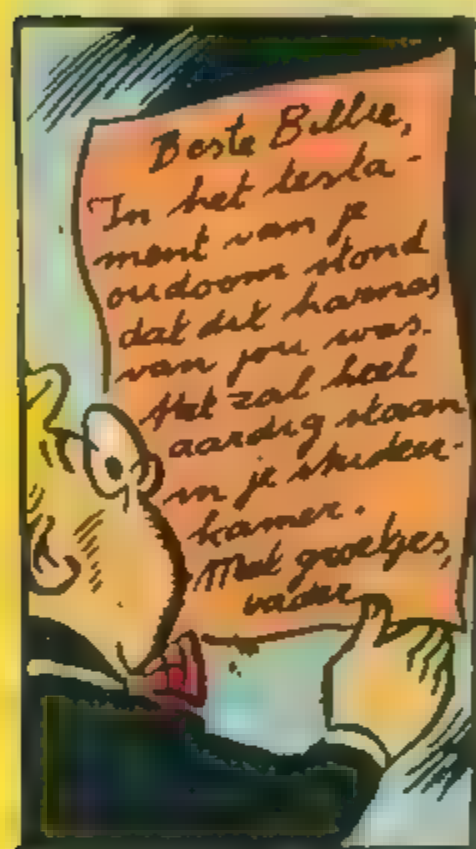 Beste Billie,
In het testa-
ment van je
oudoom stond
dat dit harnas
van jou was.
Het zal heel
aardig staan
in je studeer-
kamer.
Met groetjes,
vader